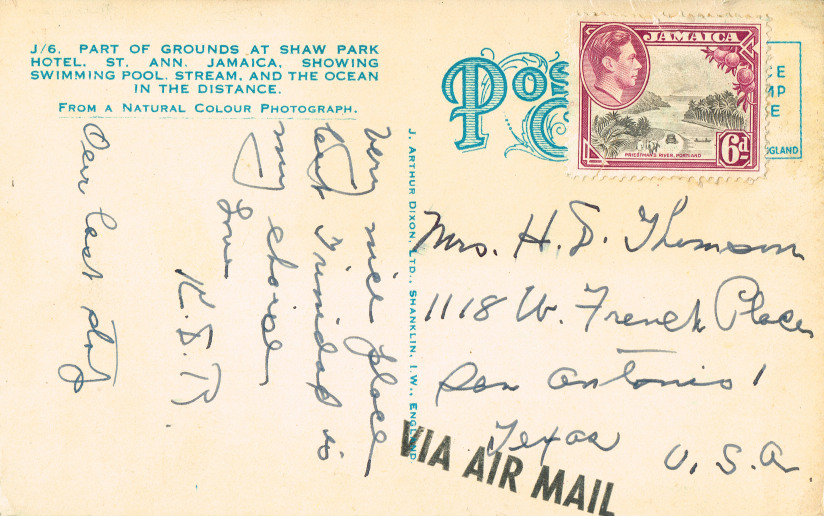 J/6. PART OF GROUNDS AT SHAW PARK
HOTEL. ST. ANN. JAMAICA, SHOWING
SWIMMING POOL, STREAM, AND THE OCEAN
IN THE DISTANCE.
FROM A NATURAL COLOUR PHOTOGRAPH.
Very nice place
but Trinidad is
my choice
Love
K.D.R.
Our last stop
J. ARTHUR DIXON, LTD., SHANKLIN, I.W., ENGLAND
POS
C
CE
MP
E
NGLAND
JAMAICA
PRIESTMANS RIVER, PORTLAND
6d
Mrs. H. D. Thomson
1118 W. French Place
San Antonio 1
Texas
U. S. A.
VIA AIR MAIL